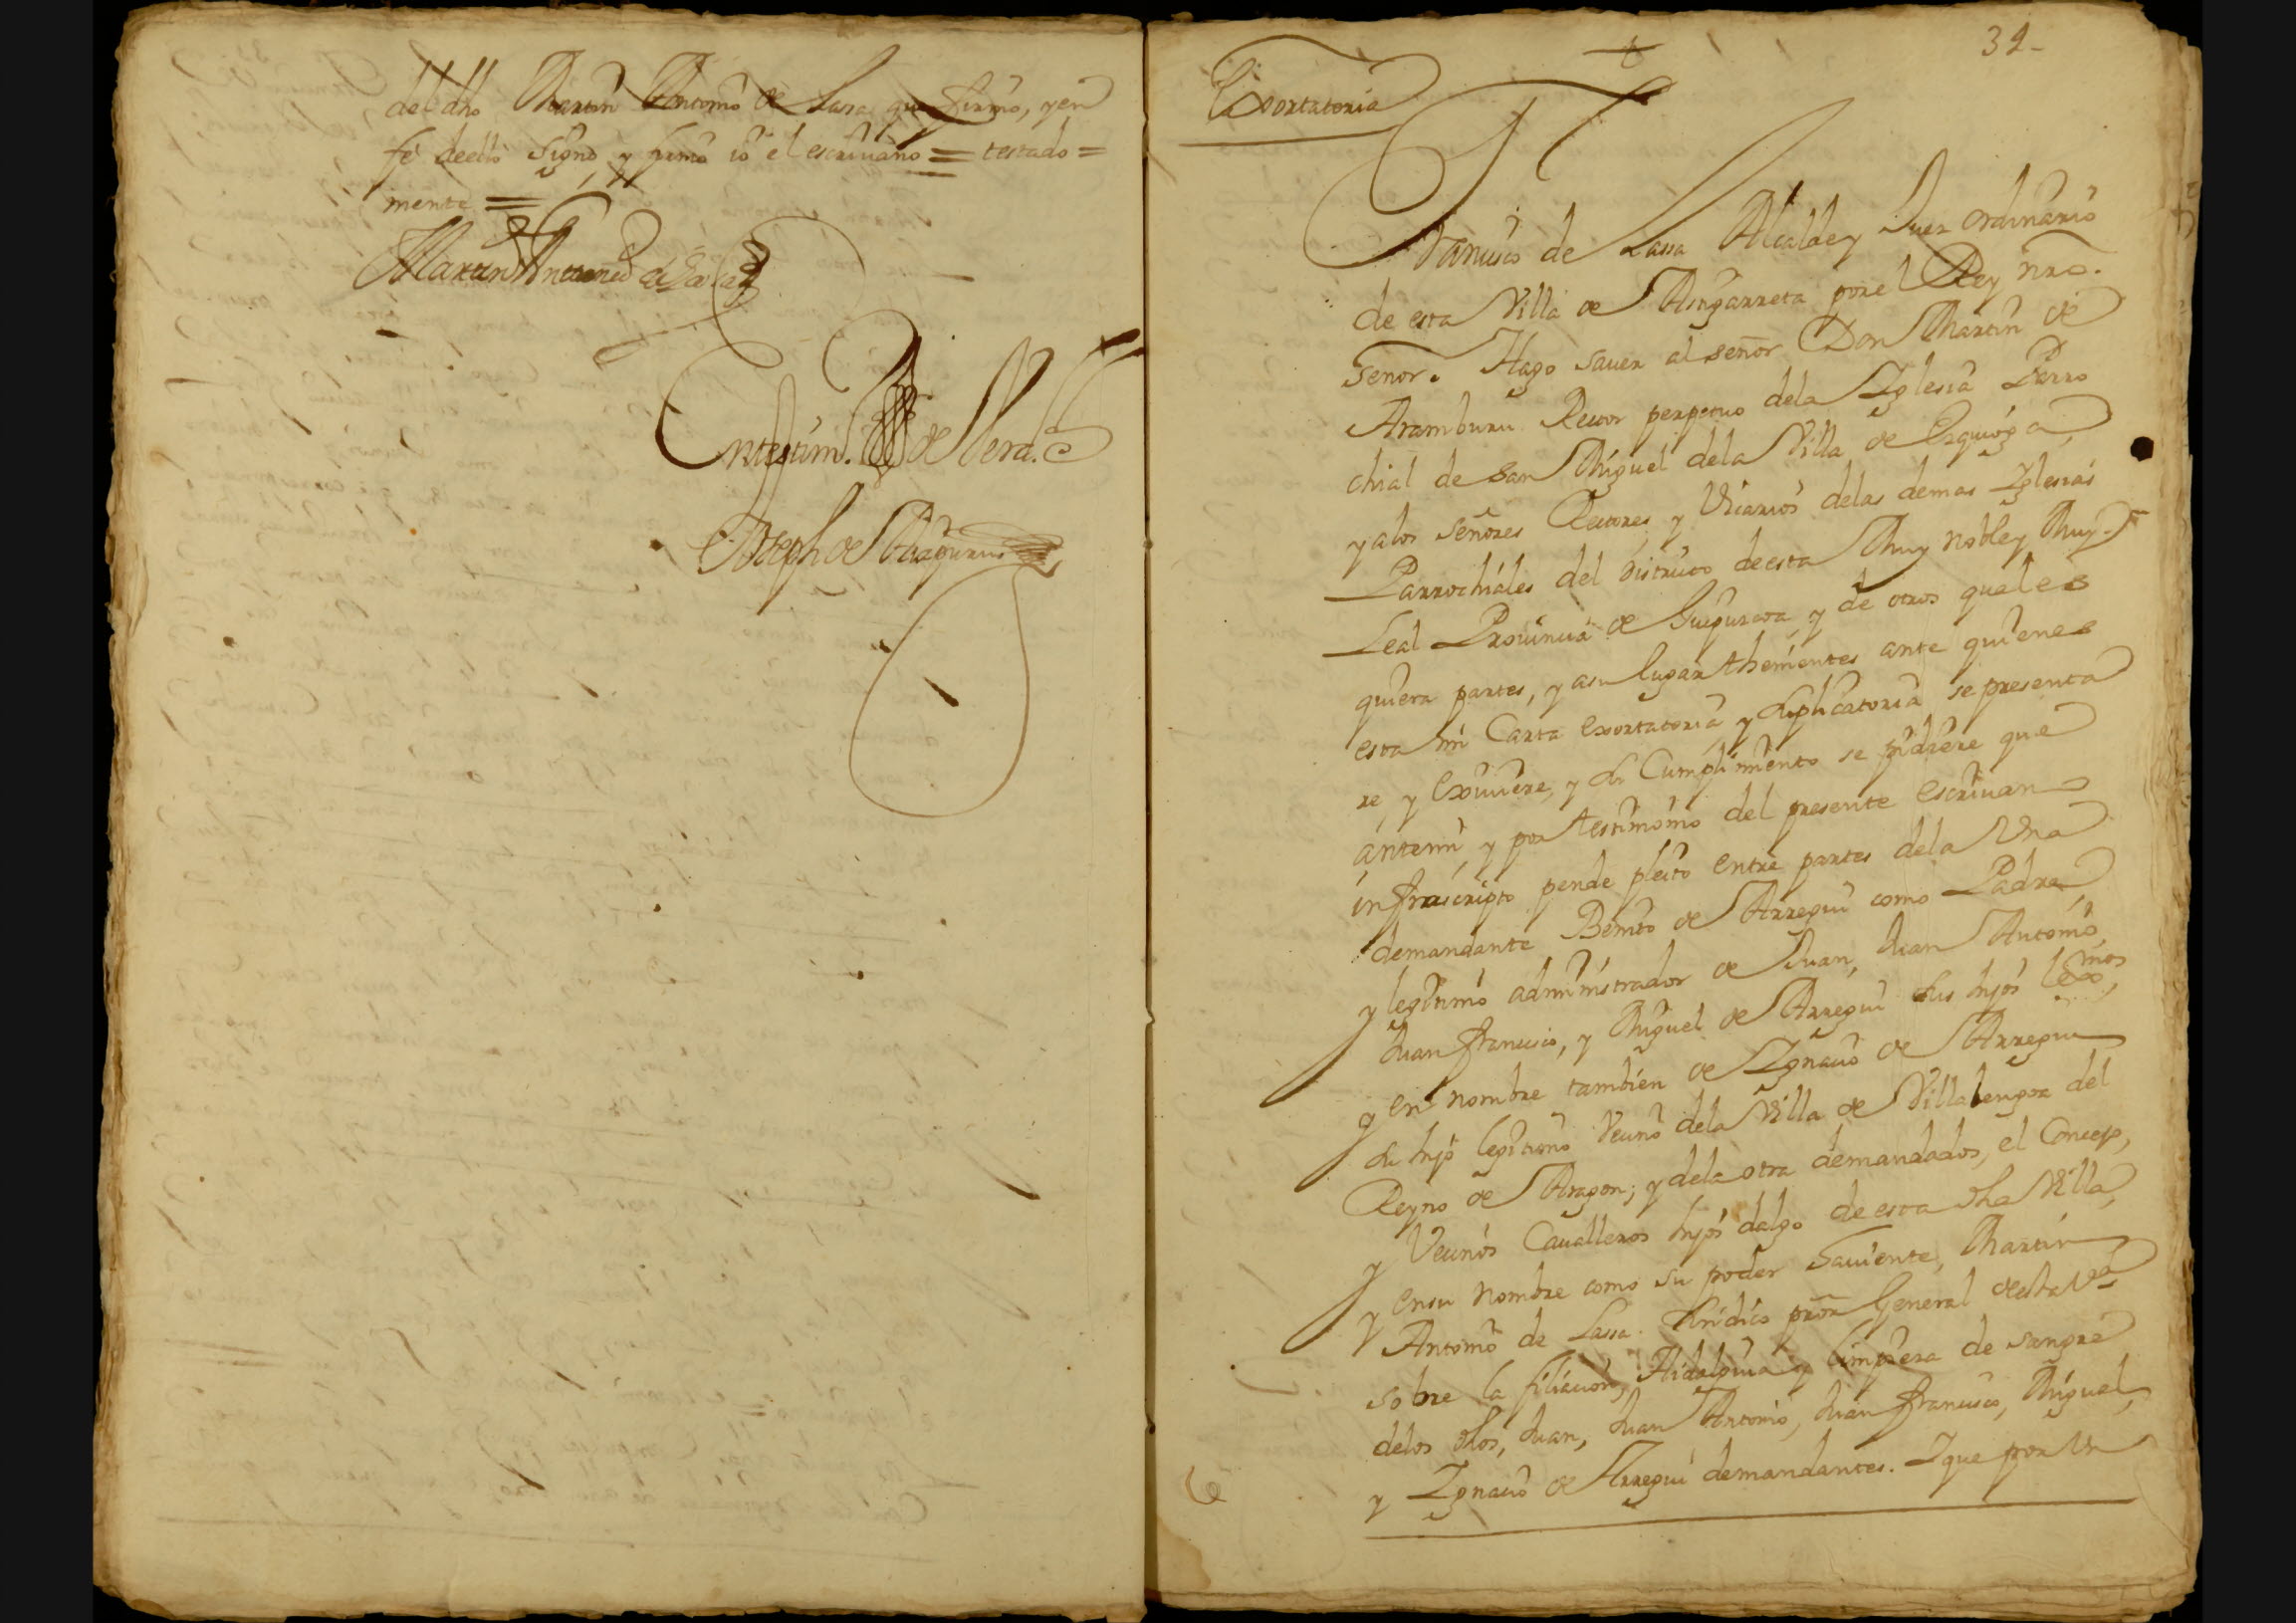 del dho Martin Antonio de Lassa que firmo, y en
fé de ello signo, y firmo io el escrivano = testado =
mente =
Martin Antonio de Lasa
En testim.º de Verd.d
Joseph de Aragurus
34
Exortatoria
Francisco de Lassa Alcalde y Juez ordinario
de esta Villa de Astigarreta por el Rey nro.
Señor. Hago saver al señor Don Martin de
Aramburu Rector perpetuo dela Yglesia Parro
chial de San Miguel dela Villa de Ezquioga,
y alos señores Rectores, y Vicarios delas demas Yglesias
Parrochiales del districto de esta Muy noble y Muy
Leal Provincia de Guipuzcoa, y de otros quales
quiera partes, y a su lugar thenientes ante quienes
esta mi Carta exortatoria y suplicatoria se presenta
re, y exiviere, y su Cumplimiento se pidiere que
ante mi y por testimonio del presente escrivano
infrascripto pende pleito entre partes dela Una
demandante Benito de Arregui como Padre,
y legitimo administrador de Juan, Juan Antonio,
Juan francisco, y Miguel de Arregui sus hijos lexmos,
y en nombre tambien de Ygnacio de Arregui
su hijo legitimo Vecino dela Villa de Villaluenga del
Reyno de Aragon; y dela otra demandados, el Concejo,
y Vecinos Cavalleros hijos dalgo de esta dha Villa,
y en su nombre como su poder haviente, Martin
Antonio de Lassa. Sindico pror General de dha Vª
sobre la filiacion, Hidalguia y limpieza de sangre
delos dhos, Juan, Juan Antonio, Juan francisco, Miguel,
y Ygnacio de Arregui demandantes. Y que por Un